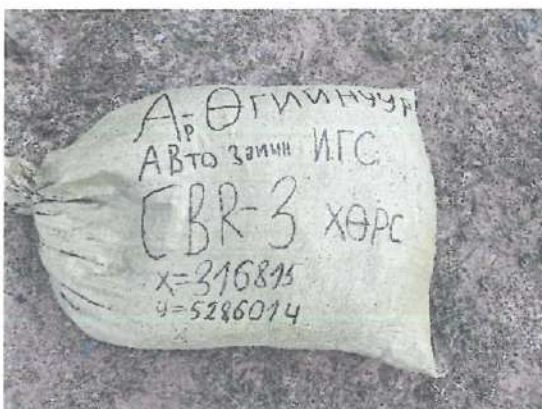 Ар-Өгийнуур
Авто замын ИГС
CBR-3 ХӨРС
X=316815
Y=5286014